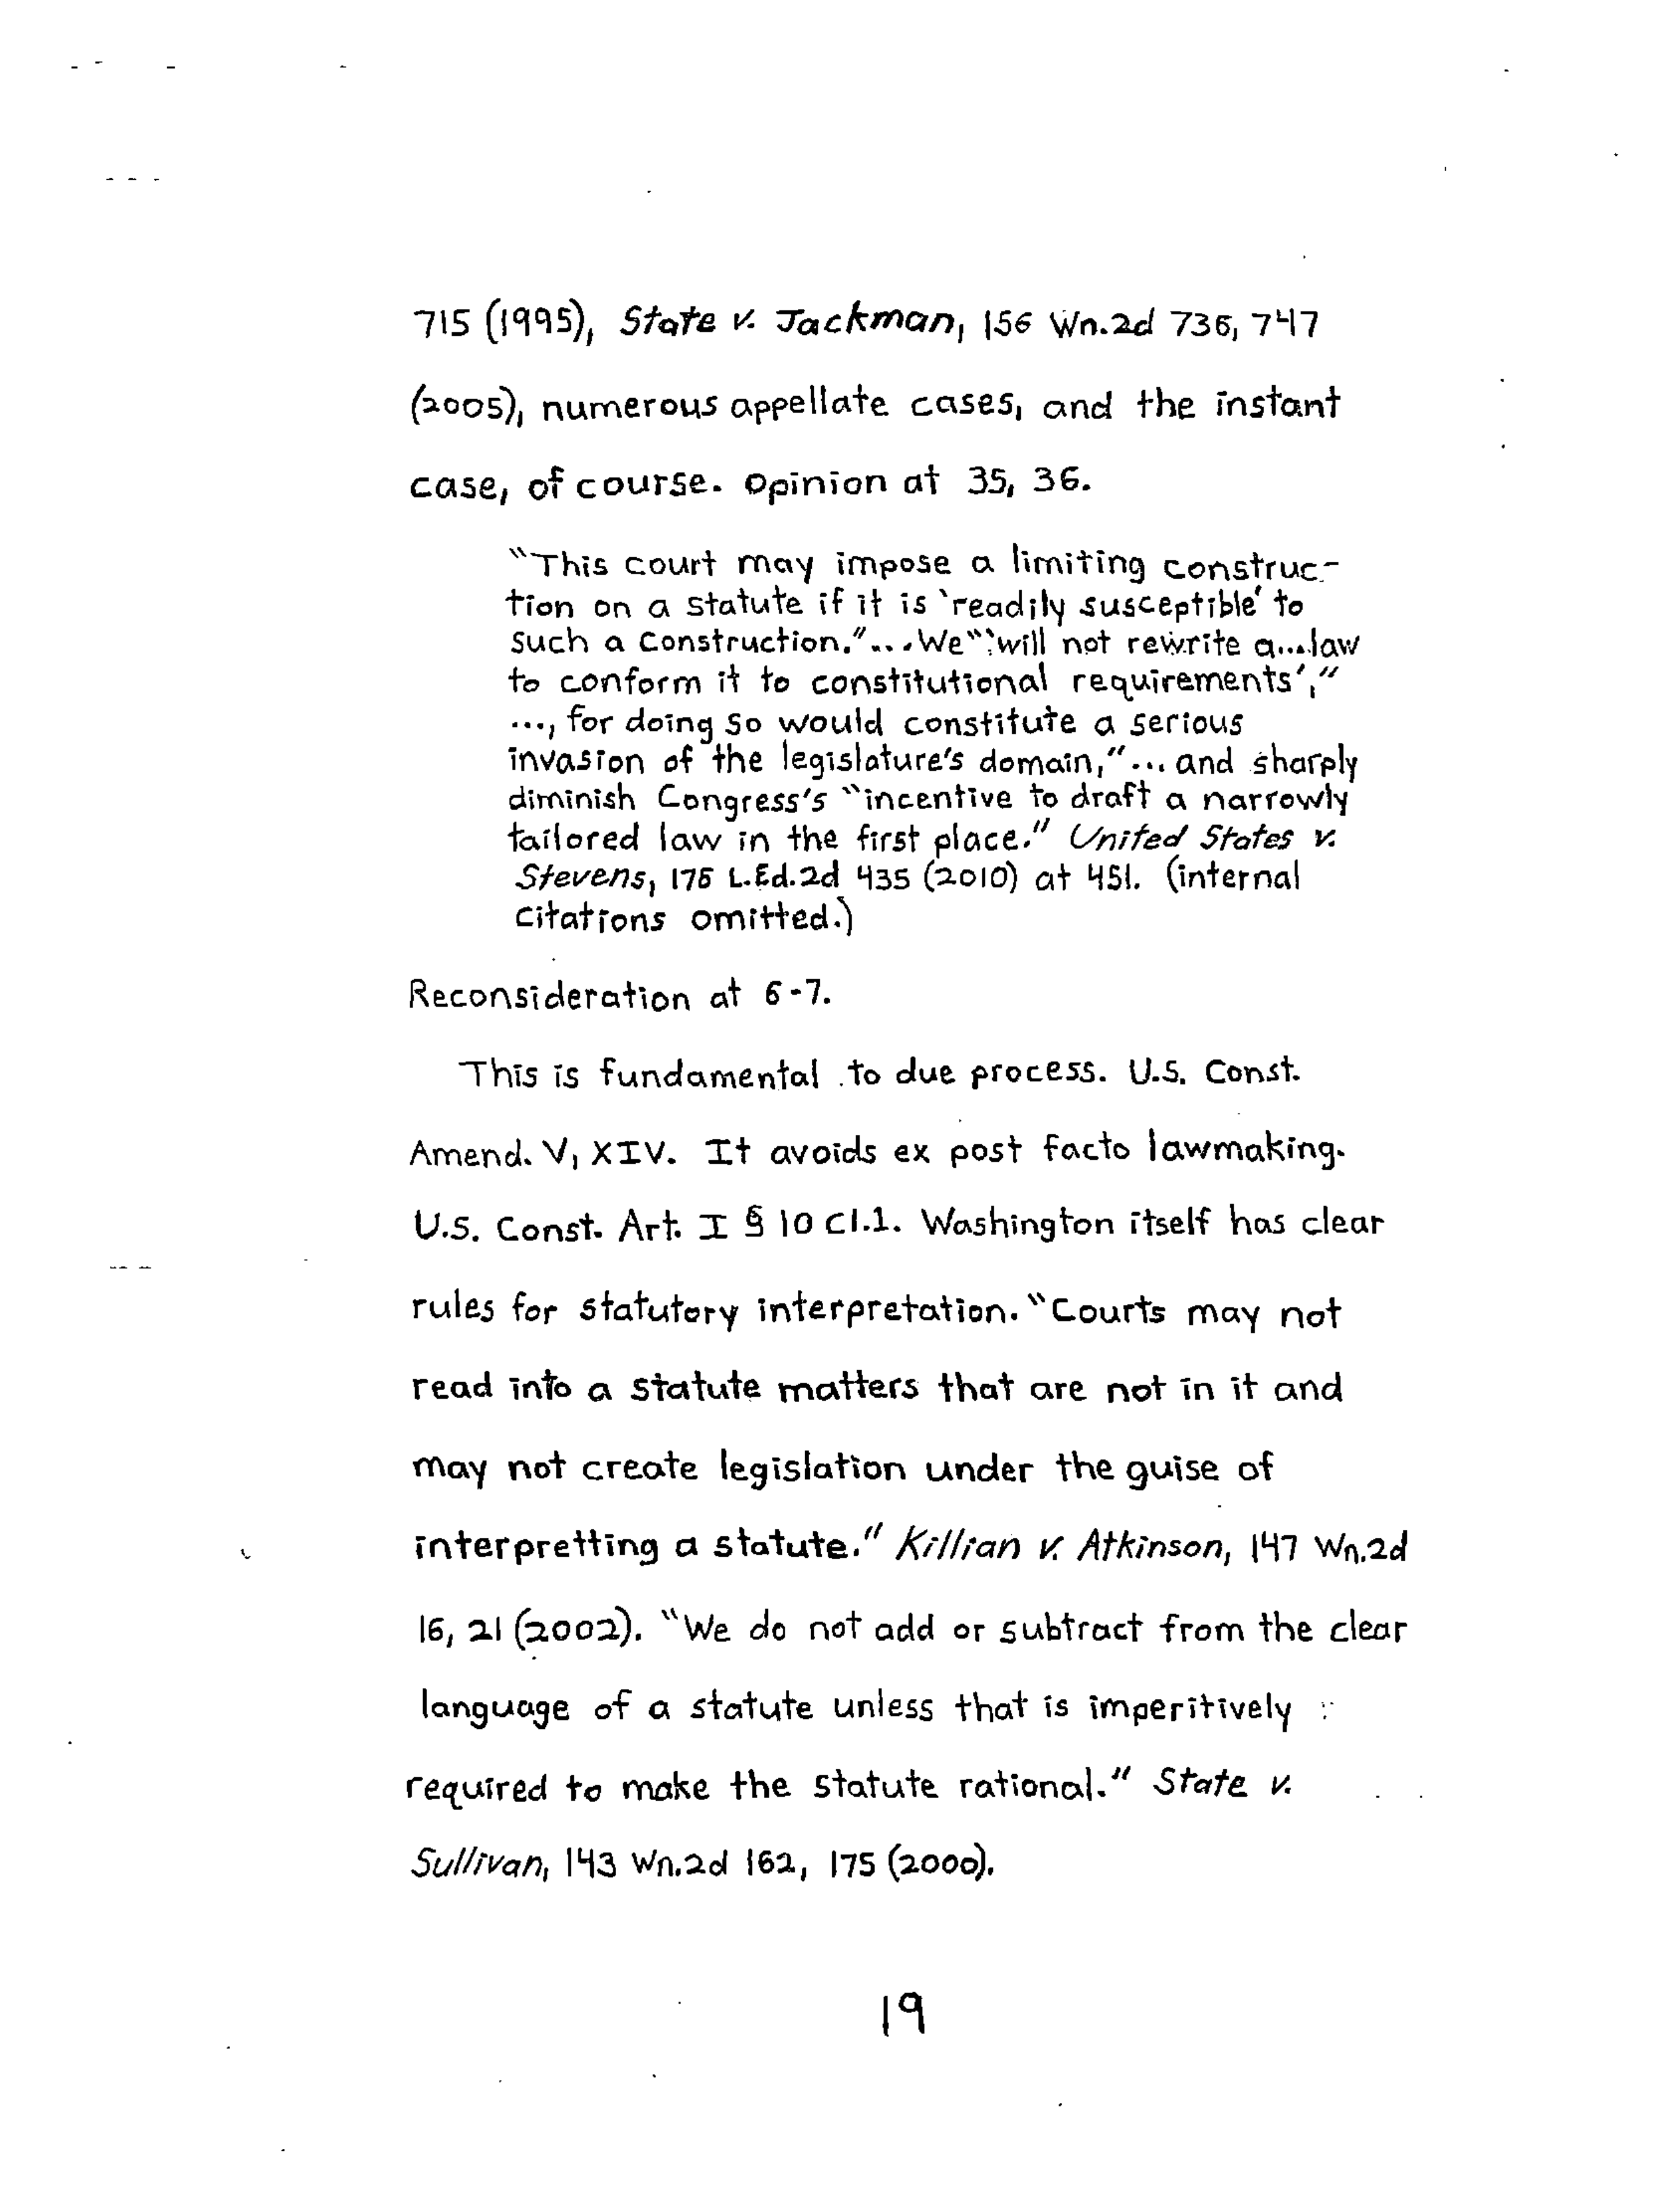 715 (1995), State v. Jackman, 156 Wn.2d 736, 747
(2005), numerous appellate cases, and the instant
case, of course. Opinion at 35, 36.
"This court may impose a limiting construc-
tion on a statute if it is 'readily susceptible' to
such a construction."... We "'will not rewrite a...law
to conform it to constitutional requirements',"
..., for doing so would constitute a serious
invasion of the legislature's domain,"... and sharply
diminish Congress's "incentive to draft a narrowly
tailored law in the first place." United States v.
Stevens, 176 L.Ed.2d 435 (2010) at 451. (internal
citations omitted.)
Reconsideration at 6-7.
This is fundamental to due process. U.S. Const.
Amend. V, XIV. It avoids ex post facto lawmaking.
U.S. Const. Art. I § 10 cl.1. Washington itself has clear
rules for statutory interpretation. "Courts may not
read into a statute matters that are not in it and
may not create legislation under the guise of
interpretting a statute." Killian v. Atkinson, 147 Wn.2d
16, 21 (2002). "We do not add or subtract from the clear
language of a statute unless that is imperitively
required to make the statute rational." State v.
Sullivan, 143 Wn.2d 162, 175 (2000).
19